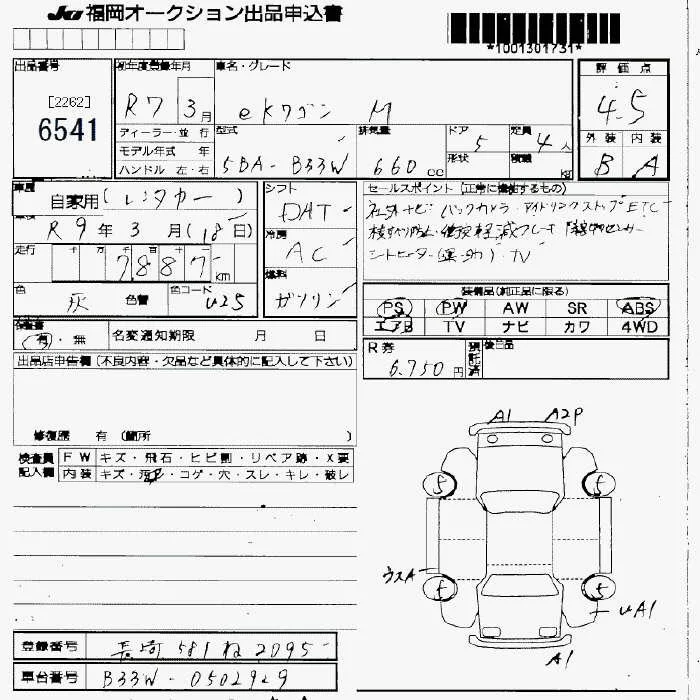 JU 福岡オークション出品申込書
*1001301731*
出品番号
[2262]
6541
初年度登録年月
R7 3月
車名・グレード
eKワゴン M
評価点
4.5
外装 内装
B A
ディーラー・並行
モデル年式 年
ハンドル 左・右
型式
5BA-B33W
排気量
660 cc
ドア 5
形状
定員 4人
積載 kg
車歴
自家用(レンタカー)
車検
R9年3月(18日)
走行
十万千百十
7887 km
色 灰 色替
色コード U25
シフト
DAT
冷房
AC
燃料
ガソリン
セールスポイント(正常に機能するもの)
社外ナビ バックカメラ・アイドリングストップ ETC
シートヒーター(運・助) TV
装備品(純正品に限る)
PS PW AW SR ABS
エアB TV ナビ カワ 4WD
有・無
名変通知期限 月 日
R券
6.750円
預託済
後日品
出品店申告欄(不良内容・欠品など具体的に記入して下さい)
修復歴 有(箇所 )
検査員記入欄
FW キズ・飛石・ヒビ割・リペア跡・X要
内装 キズ・汚レ・コゲ・穴・スレ・キレ・破レ
A1 A2P
5 5
ウスA
5 5
UA1
A1
登録番号 長崎 581 ね 2095
車台番号 B33W-0502929